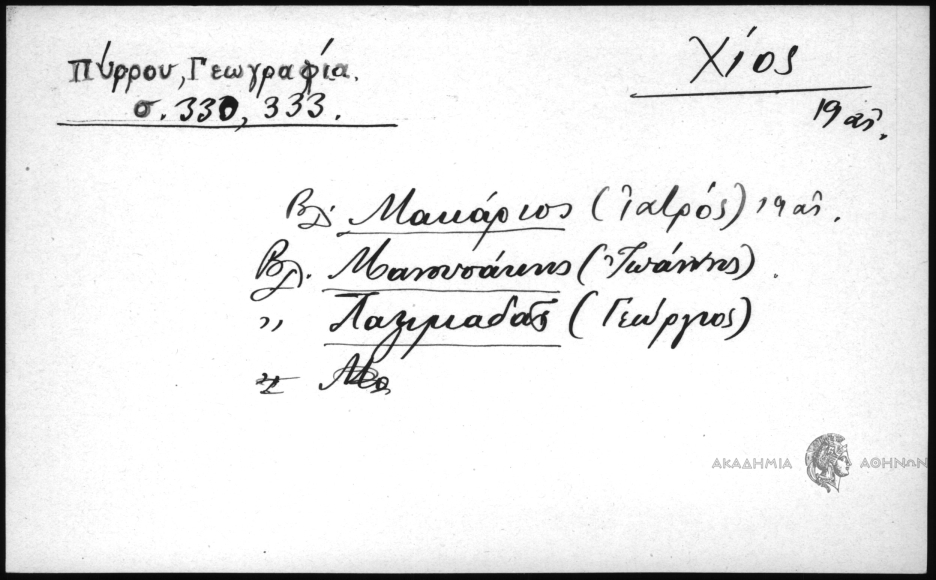 Πύρρου, Γεωγραφία.
σ. 330, 333.
Χίος
19 αἰ.
Βλ. Μακάριος (ἰατρός) 19 αἰ.
Βλ. Μανουσάκης (Ἰωάννης).
,, Παξιμαδᾶς (Γεώργιος)
ΑΚΑΔΗΜΙΑ ΑΘΗΝΩΝ